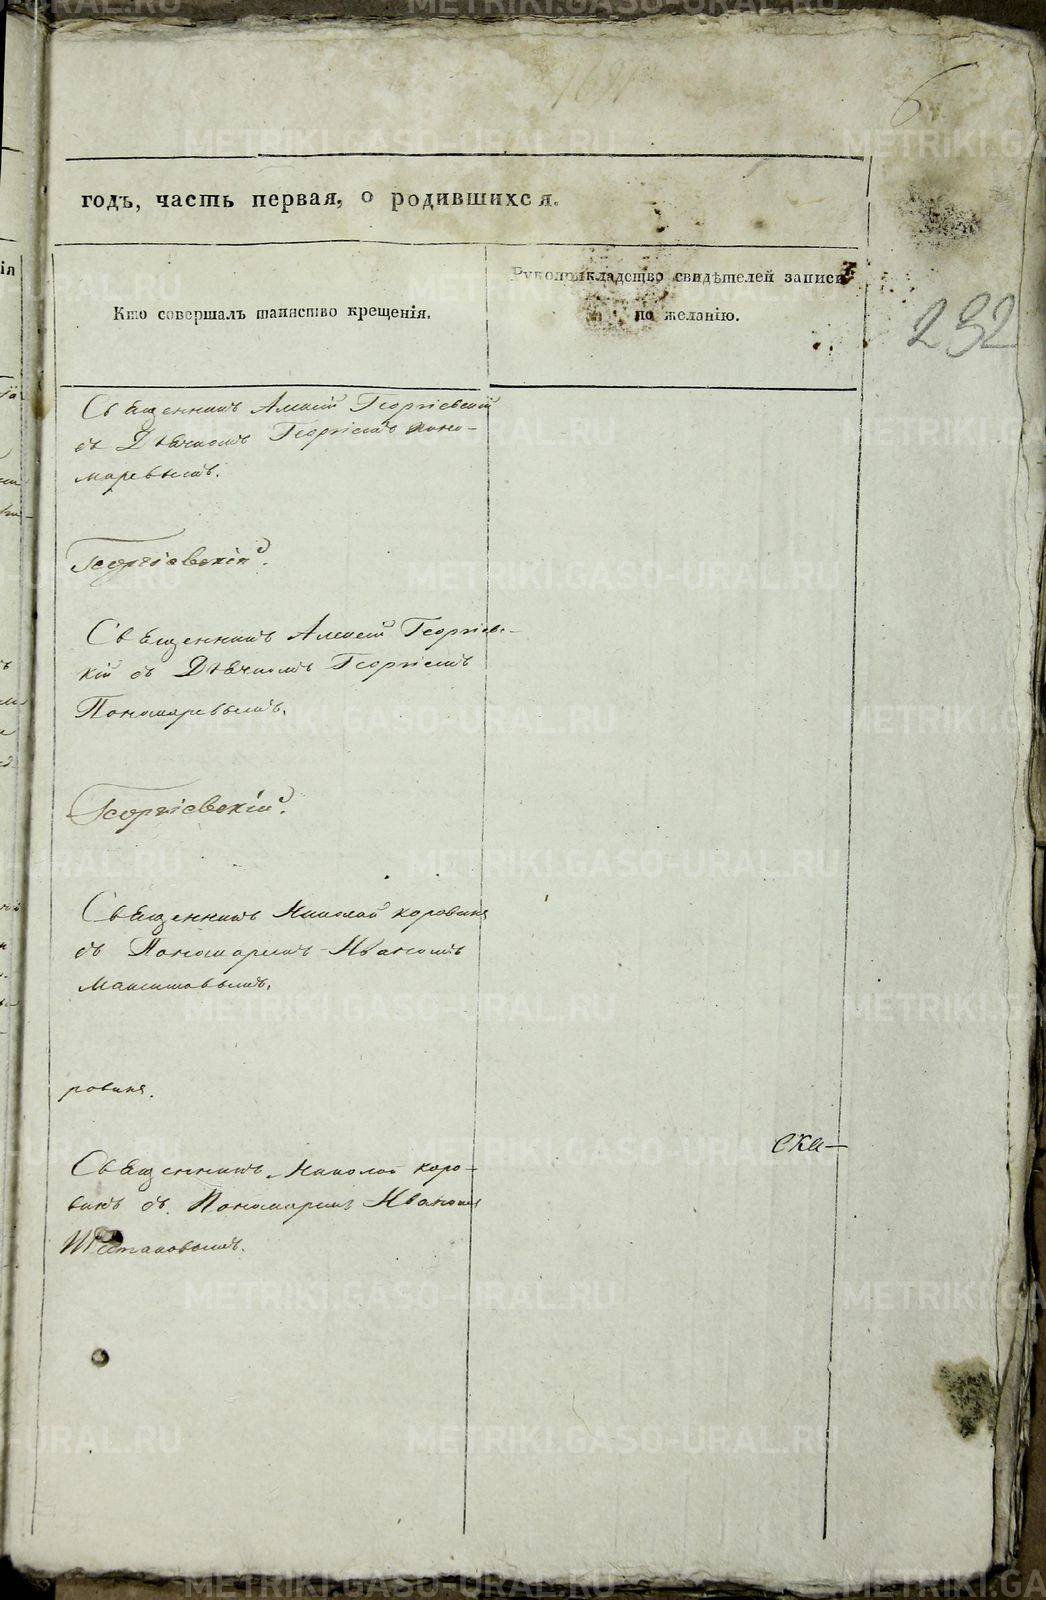 6
годъ, часть первая, о родившихся.
Кто совершалъ таинство крещенія.
Рукоприкладство свидѣтелей записи
по желанію.
292
Священникъ Алексій Георгіевскій
съ Дьячкомъ Георгіемъ Поно-
маревымъ.
Георгіевскій.
Священникъ Алексій Георгіевс-
кій съ Дьячкомъ Георгіемъ
Пономаревымъ.
Георгіевскій.
Священникъ Николай Коровинъ
съ Пономаремъ Иваномъ
ровинъ.
Священникъ Николай Коро-
винъ съ Пономаремъ Иваномъ
METRIKI.GASO-URAL.RU